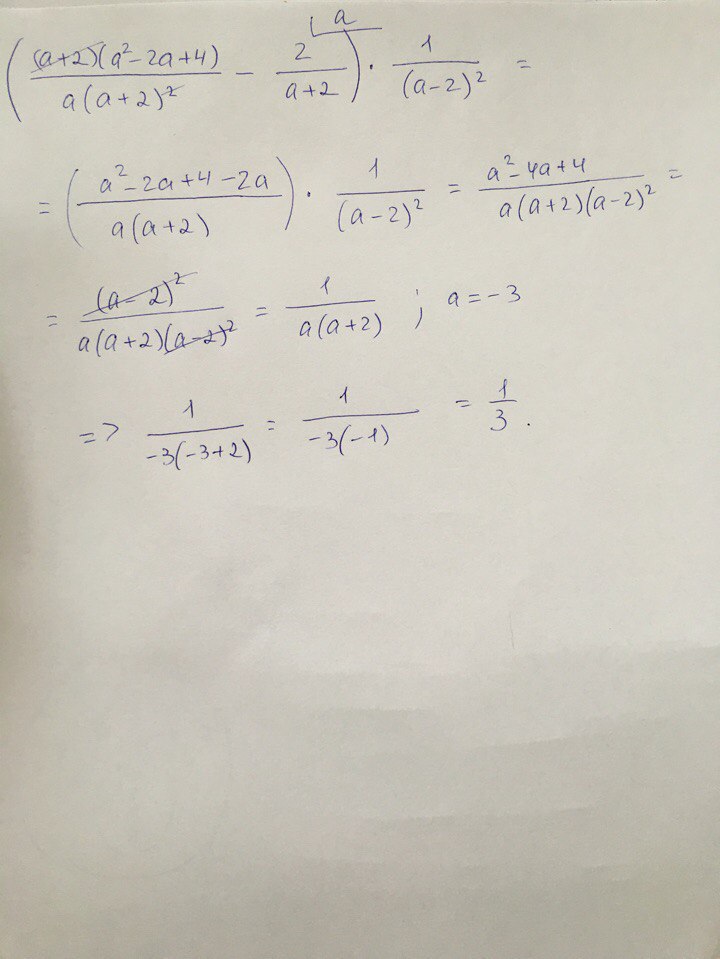 ( (a+2)(a²-2a+4) / a(a+2)² - 2 / a+2 ⌊a ) · 1 / (a-2)² =
= ( a²-2a+4-2a / a(a+2) ) · 1 / (a-2)² = a²-4a+4 / a(a+2)(a-2)² =
= (a-2)² / a(a+2)(a-2)² = 1 / a(a+2) ; a=-3
=> 1 / -3(-3+2) = 1 / -3(-1) = 1 / 3 .